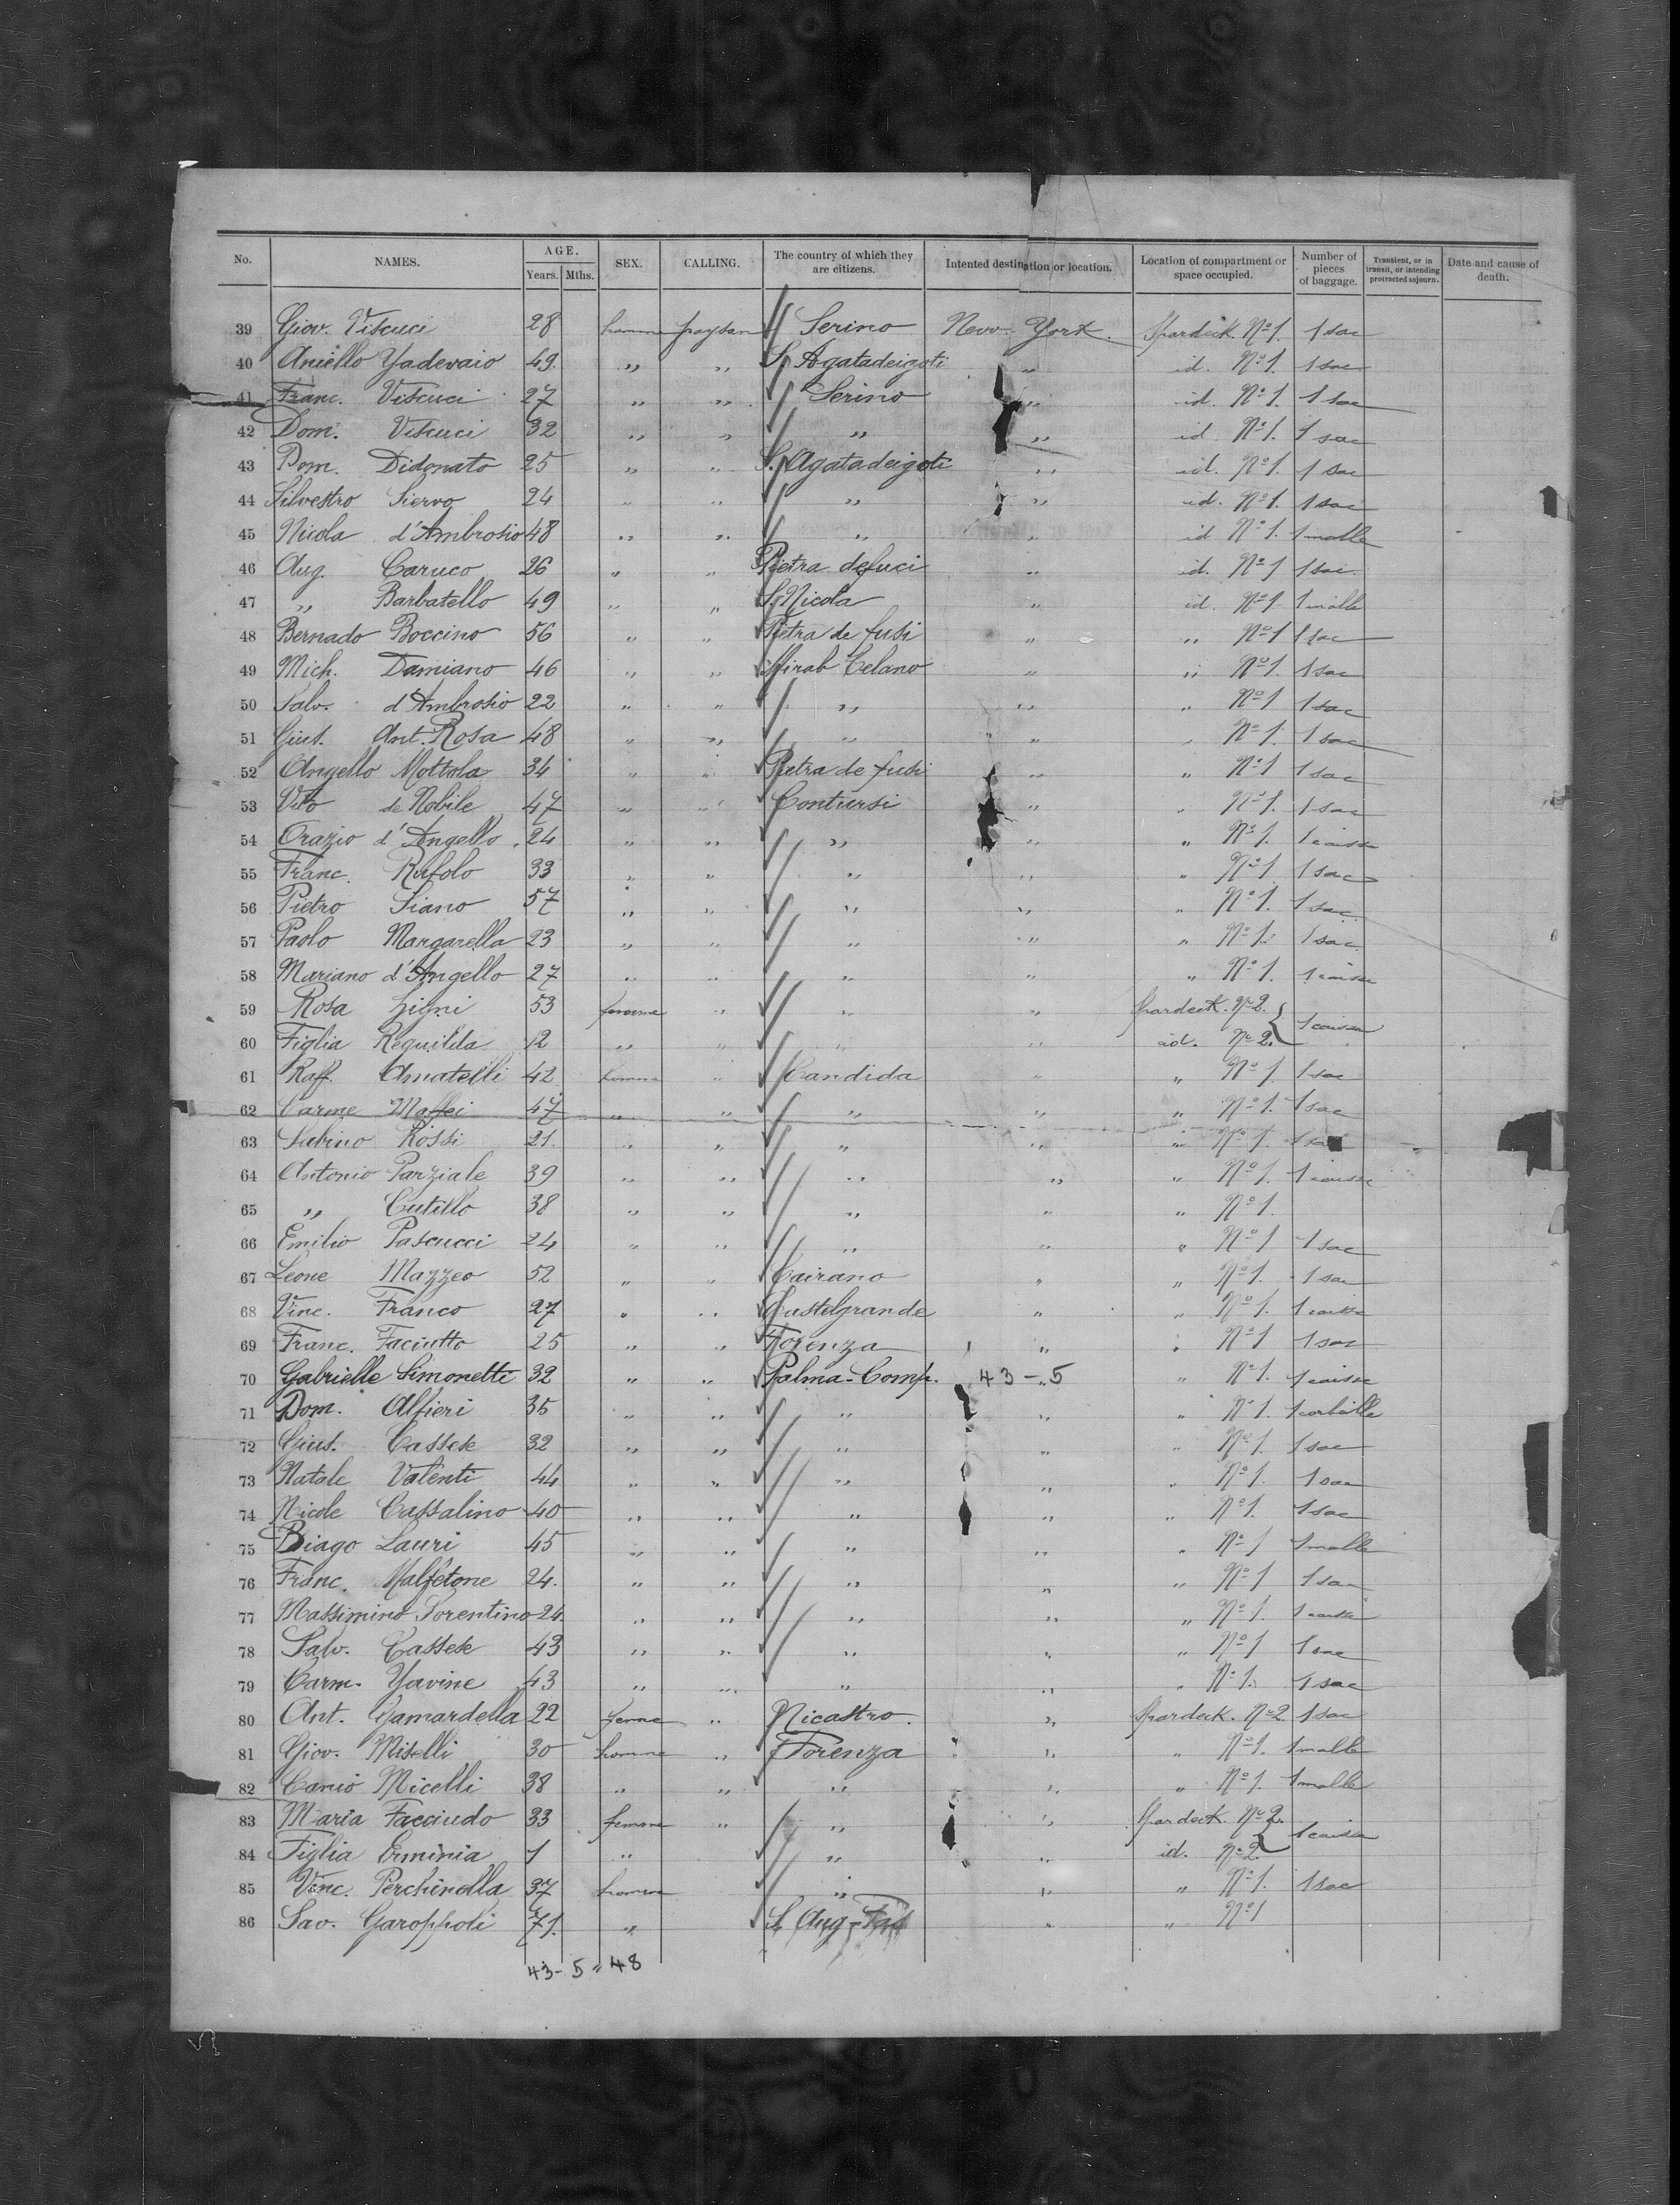 No. NAMES. AGE. Years. Mths. SEX. CALLING. The country of which they are citizens. Intented destination or location. Location of compartment or space occupied. Number of pieces of baggage. Transient, or in transit, or intending protracted sojourn. Date and cause of death.
39 Giov. Viscuci 28 homme paysan Serino New-York. Spardeck Nº 1. 1 sac
40 Aniello Yadevaio 49. " " S. Agatadeigoti " id. Nº 1. 1 sac
41 Franc. Viscuci 27 " " Serino " id. Nº 1. 1 sac
42 Dom. Viscuci 32 " " " " id. Nº 1. 1 sac
43 Dom. Didonato 25 " " S. Agatadeigoti " id. Nº 1. 1 sac
44 Silvestro Siervo 24 " " " " id. Nº 1. 1 sac
45 Nicola d'Ambrosio 48 " " " " id Nº 1. 1 malle
46 Aug. Caruco 26 " " Pietra defuci " id. Nº 1 1 sac
47 " Barbatello 49 " " S. Nicola " id. Nº 1 1 malle
48 Bernado Boccino 56 " " Pietra de fusi " " Nº 1 1 sac
49 Mich. Damiano 46 " " Mirab Celano " " Nº 1. 1 sac
50 Salv. d'Ambrosio 22 " " " " " Nº 1 1 sac
51 Gius. Ant. Rosa 48 " " " " " Nº 1. 1 sac
52 Angello Mottola 34 " " Pietra de fusi " " Nº 1 1 sac
53 Vito de Nobile 47 " " Contursi " " Nº 1. 1 sac
54 Orazio d'Angello 24 " " " " " Nº 1. 1 caisse
55 Franc. Rufolo 33 " " " " " Nº 1 1 sac
56 Pietro Siano 57 " " " " " Nº 1. 1 sac
57 Paolo Margarella 23 " " " " " Nº 1. 1 sac
58 Mariano d'Angello 27 " " " " " Nº 1. 1 caisse
59 Rosa Ligni 53 femme " " " Spardeck. Nº 2. 1 caisse
60 Figlia 12 " " " " id. Nº 2.
61 Raff. Amatelli 42 homme " Candida " " Nº 1 1 sac
62 Carme Maffei 47 " " " " " Nº 1. 1 sac
63 Sabino Rossi 21. " " " " " Nº 1. 1 sac
64 Antonio Parziale 39 " " " " " Nº 1. 1 caisse
65 " Cutillo 38 " " " " " Nº 1.
66 Emilio Pascucci 24 " " " " " Nº 1 1 sac
67 Leone Mazzeo 52 " " Cairano " " Nº 1. 1 sac
68 Vinc. Franco 27 " " Castelgrande " " Nº 1. 1 caisse
69 Franc. Faciutto 25 " " Forenza " " Nº 1 1 sac
70 Gabrielle Simonetti 32 " " Palma-Comp. 43 - 5 " " Nº 1. 1 caisse
71 Dom. Alfieri 35 " " " " " Nº 1. 1 corbeille
72 Gius. Cassese 32 " " " " " Nº 1. 1 sac
73 Natale Valenti 44 " " " " " Nº 1. 1 sac
74 Nicole Cassalino 40 " " " " " Nº 1. 1 sac
75 Biago Lauri 45 " " " " " Nº 1 1 malle
76 Franc. Malfetone 24. " " " " " Nº 1 1 sac
77 Massimino Sorentino 24. " " " " " Nº 1. 1 caisse
78 Salv. Cassese 43 " " " " " Nº 1 1 sac
79 Carm. Yavine 43 " " " " " Nº 1. 1 sac
80 Ant. Gamardella 22 femme " Nicastro. " Spardeck. Nº 2 1 sac
81 Giov. Miselli 30 homme " Forenza " " Nº 1. 1 malle
82 Canio Micelli 38 " " " " " Nº 1. 1 malle
83 Maria Facciudo 33 femme " " " Spardeck Nº 2. 1 caisse
84 Figlia Erminia 1 " " " id. Nº 2
85 Vinc. Perchinella 37 homme " " " Nº 1. 1 sac
86 Sav. Garoppoli 71. " S. Aug " " Nº 1
43 - 5 " 48